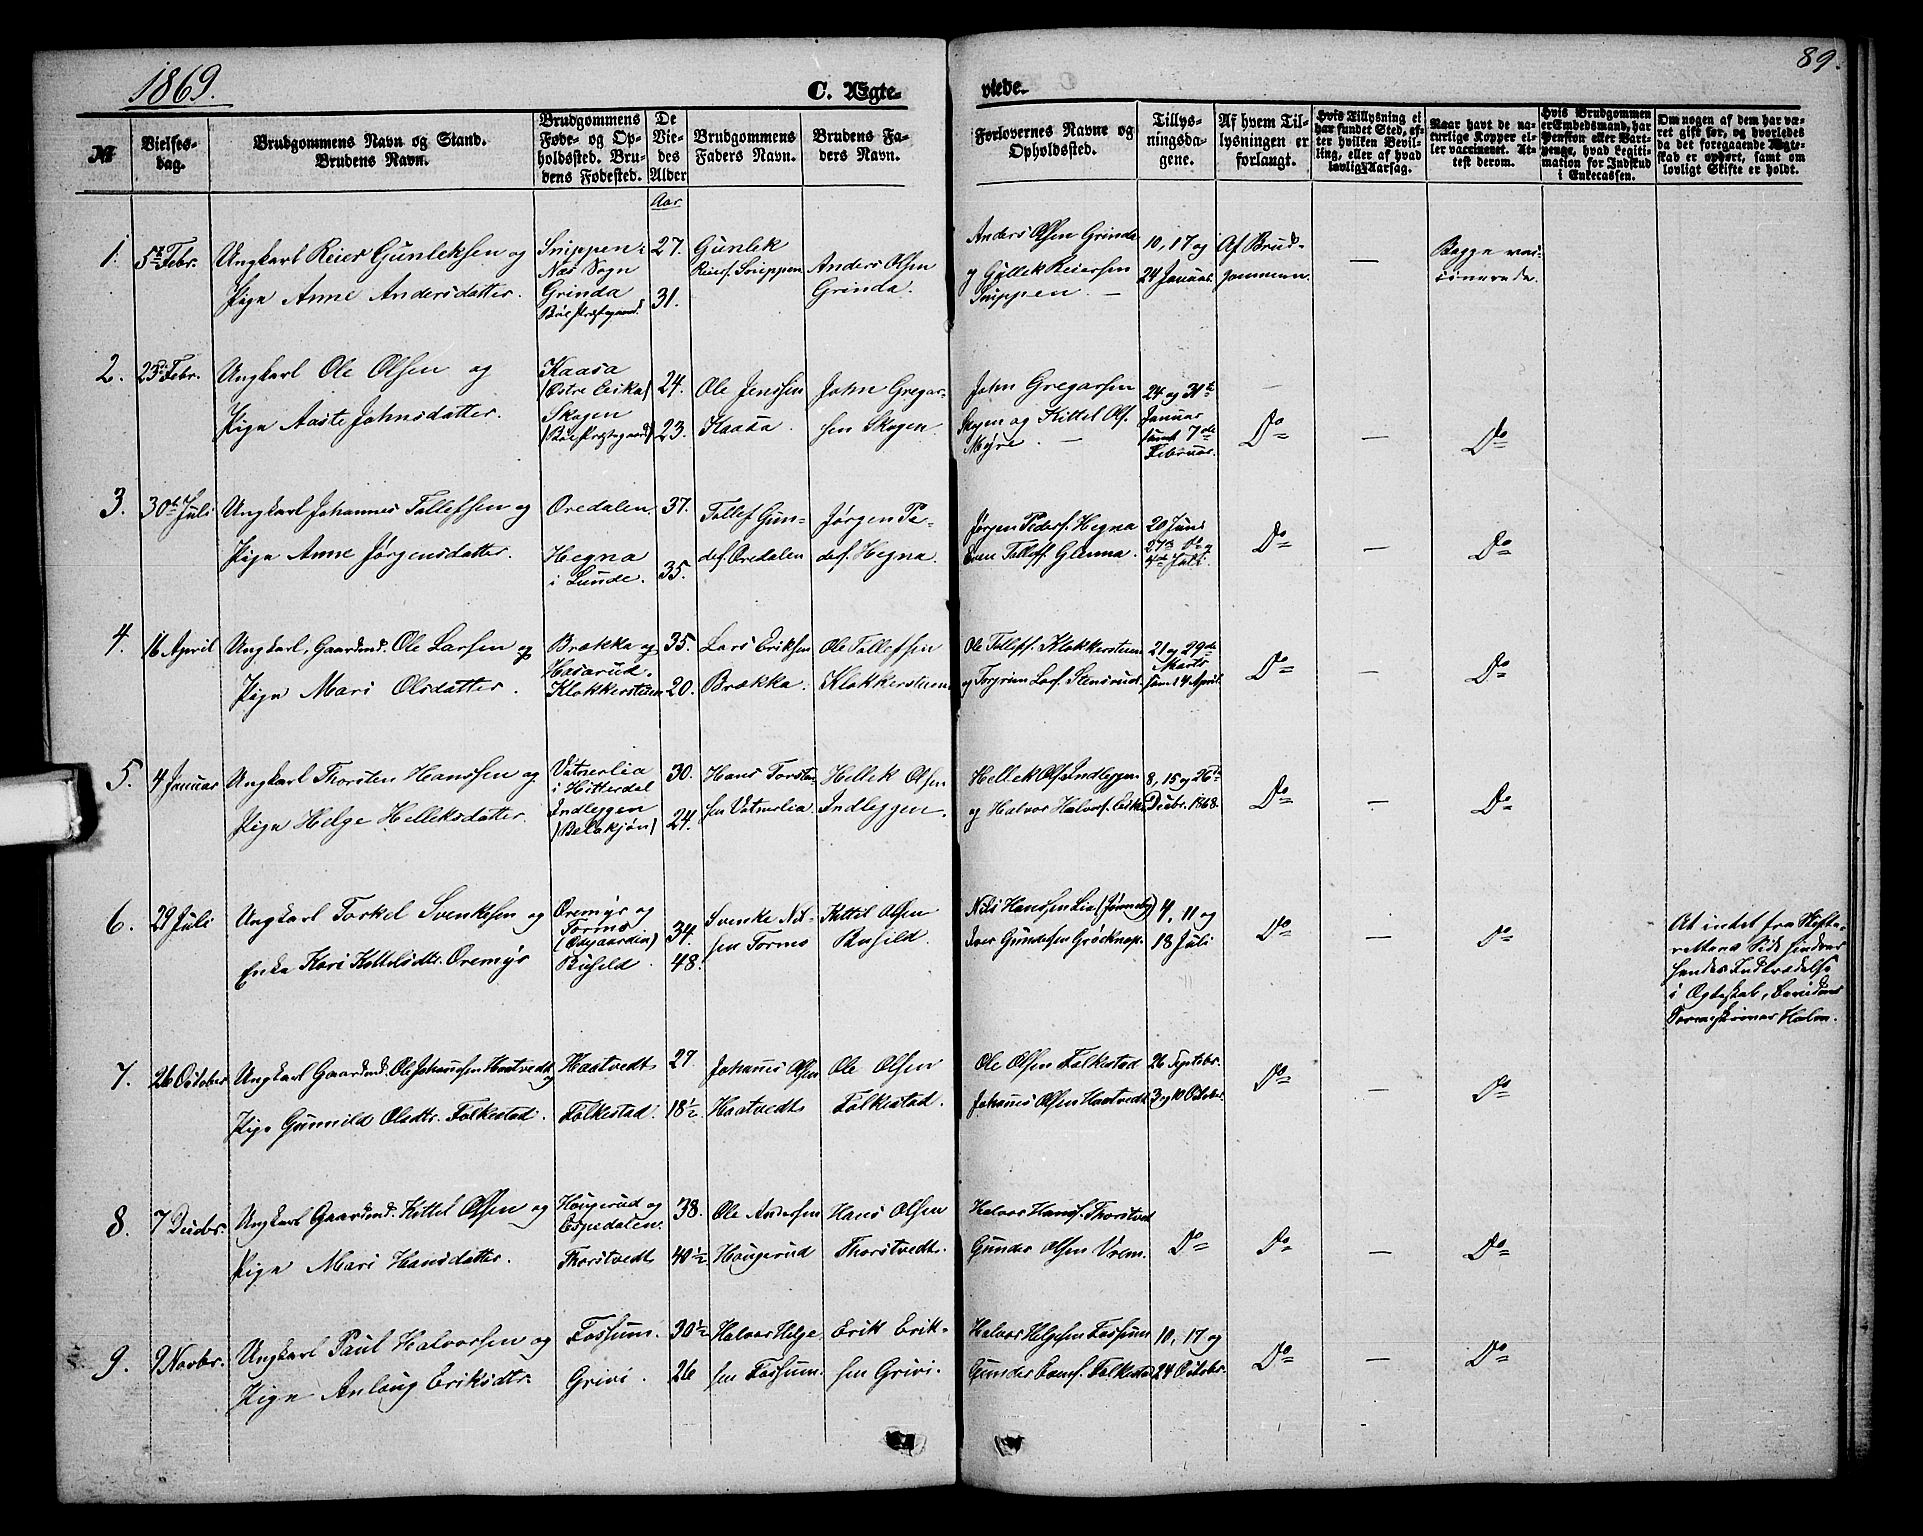 1869.
89.
C. Ægte-
viede.
№
Vielses-
dag.
Brudgommens Navn og Stand.
Brudens Navn.
Brudgommens
Føde- og Op-
holdssted. Bru-
dens Fødested.
De
Vie-
des
Alder
Brudgommens
Faders Navn.
Brudens Fa-
ders Navn.
Forlovernes Navne og
Opholdssted.
Tillys-
ningsda-
gene.
Af hvem Til-
lysningen er
forlangt.
Hvis Tillysning ei
har fundet Sted, ef-
ter hvilken Bevil-
ling, eller af hvad
lovlig Aarsag.
Naar havt de na-
turlige Kopper el-
ler vaccineret. At-
test derom.
Hvis Brudgommen
er Embedsmand, har
Pension eller Vart-
penge, hvad Legiti-
mation for Indskud
i Enkecassen.
Om nogen af dem har væ-
ret gift før, og hvorledes
da det foregaaende Ægte-
skab er ophørt, samt om
lovligt Skifte er holdt.
Aar
1.
5te Febr.
Ungkarl Reier Gunleksen og
Pige Anne Andersdatter.
Snippen
Næs Sogn
Grinda
Bøe Præstegaard
27.
31.
Gunlek
Reiers. Snippen
Anders Olsen
Grinda.
Anders Olsen Grinda
og Gullek Reiersen
Snippen. —
10, 17 og
24 Januar.
Af Brud-
gommen.
—
Begge vac-
cinerede.
2.
23de Febr.
Ungkarl Ole Olsen og
Pige Aaste Johnsdatter.
Kaasa
(Østre Eika)
Skogen
(Bøe Præstegaard)
24.
23.
Ole Jenssen
Kaasa.
John Gregar-
sen Skogen.
John Gregarsen
Skogen og Kittel Ols.
Myre. —
24 og 31te
Januar
samt 7de
Februar.
Do
—
Do
3.
30te Juli
Ungkarl Johannes Tollefsen og
Pige Anne Jørgensdatter.
Oredalen
Hegna
i Lunde.
37.
35.
Tollef Gun-
des. Oredalen
Jørgen Pe-
ders. Hegna.
Jørgen Peders. Hegna
Even Tollefs. Glenna
20 Juni
27de Do og
4de Juli.
Do
—
Do
4.
16 April
Ungkarl, Gaardmd. Ole Larsen og
Pige Mari Olsdatter.
Brækka og
Haasrud.
Klokkersteen
35.
20.
Lars Eriksen
Brækka.
Ole Tollefsen
Klokkersteen
Ole Tollefs. Klokkersteen
og Torgrim Lars. Stensrud.
21 og 29de
Marts
sam. 4 April.
Do
—
Do
5.
4 Januar
Ungkarl Thorsten Hanssen og
Pige Helge Helleksdatter.
Vatnerlia
i Hitterdal
Indleggen
(Bolakjøn)
30.
24.
Hans Torste-
sen Vatnerlia
Hellek Olsen
Indleggen.
Hellek Ols. Indleggen
og Halvor Halvors. Eika
8, 15 og 26te
Decbr. 1868.
Do
—
Do
6.
29 Juli
Ungkarl Torkel Svenkesen og
Enke Kari Kittelsdtr. Oremyr
Oremyr og
Tormo
(Østgaardin)
Buseld.
34.
48.
Svenke Nil-
sen Tormo
Kittel Olsen
Buseld.
Nils Hanssen Lia
Iver Gundesen Grøtknap.
4, 11 og
18 Juli
Do
—
Do
At intet fra Skifte-
rettens Side hindrer
hendes Indtrædelse
i Ægteskab, bevidner
Sorenskriver Holm.
7.
26 October
Ungkarl Gaardmd. Ole Johannesen Haatvedt og
Pige Gunnild Olsdtr. Folkestad.
Haatvedt
Folkestad.
27
18 1/2
Johannes Olsen
Haatvedt
Ole Olsen
Folkestad.
Ole Olsen Folkestad
Johannes Olsen Haatvedt
26 Septebr.
3 og 10 October
Do
—
Do
8.
7 Decbr.
Ungkarl Gaardmd. Kittel Olsen og
Pige Mari Hansdatter.
Hougerud og
Espedalen.
Thorstvedt
38.
40 1/2
Ole Andersen
Hougerud
Hans Olsen
Thorstvedt.
Halvor Hans. Thorstvedt
Gunder Olsen Vrem.
Do
Do
—
Do
9.
9 Novbr.
Ungkarl Paul Halvorsen og
Pige Anlaug Eriksdtr.
Fossum.
Grivi.
30 1/2
26
Halvor Helge-
sen Fossum.
Erik Erik-
sen Grivi.
Halvor Helgesen Fossum
Gunder Folkestad
10, 17 og
24 October.
Do
—
Do